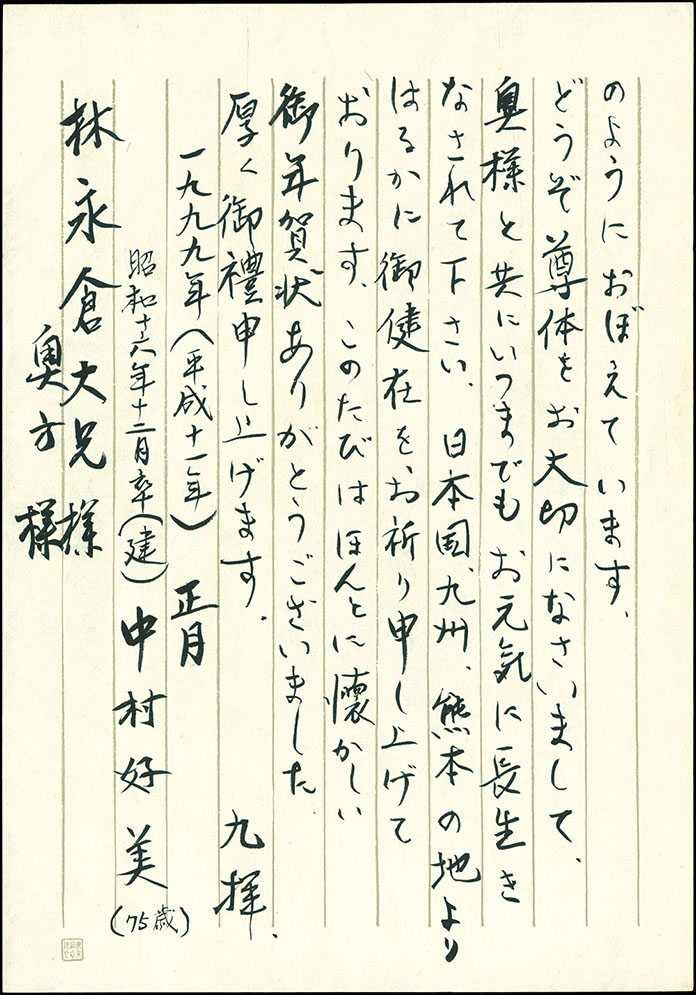 のようにおぼえています、
どうぞ尊体をお大切になさいまして、
奥様と共にいつまでもお元気に長生き
なされて下さい、日本国、九州、熊本の地より
はるかに御健在をお祈り申し上げて
おります、このたびはほんとに懐かしい
御年賀状ありがとうございました
厚く御禮申し上げます. 九拝.
一九九九年(平成十一年)正月
昭和十六年十二月卒(建)中村好美(75歳)
林永倉大兄様
奥方様